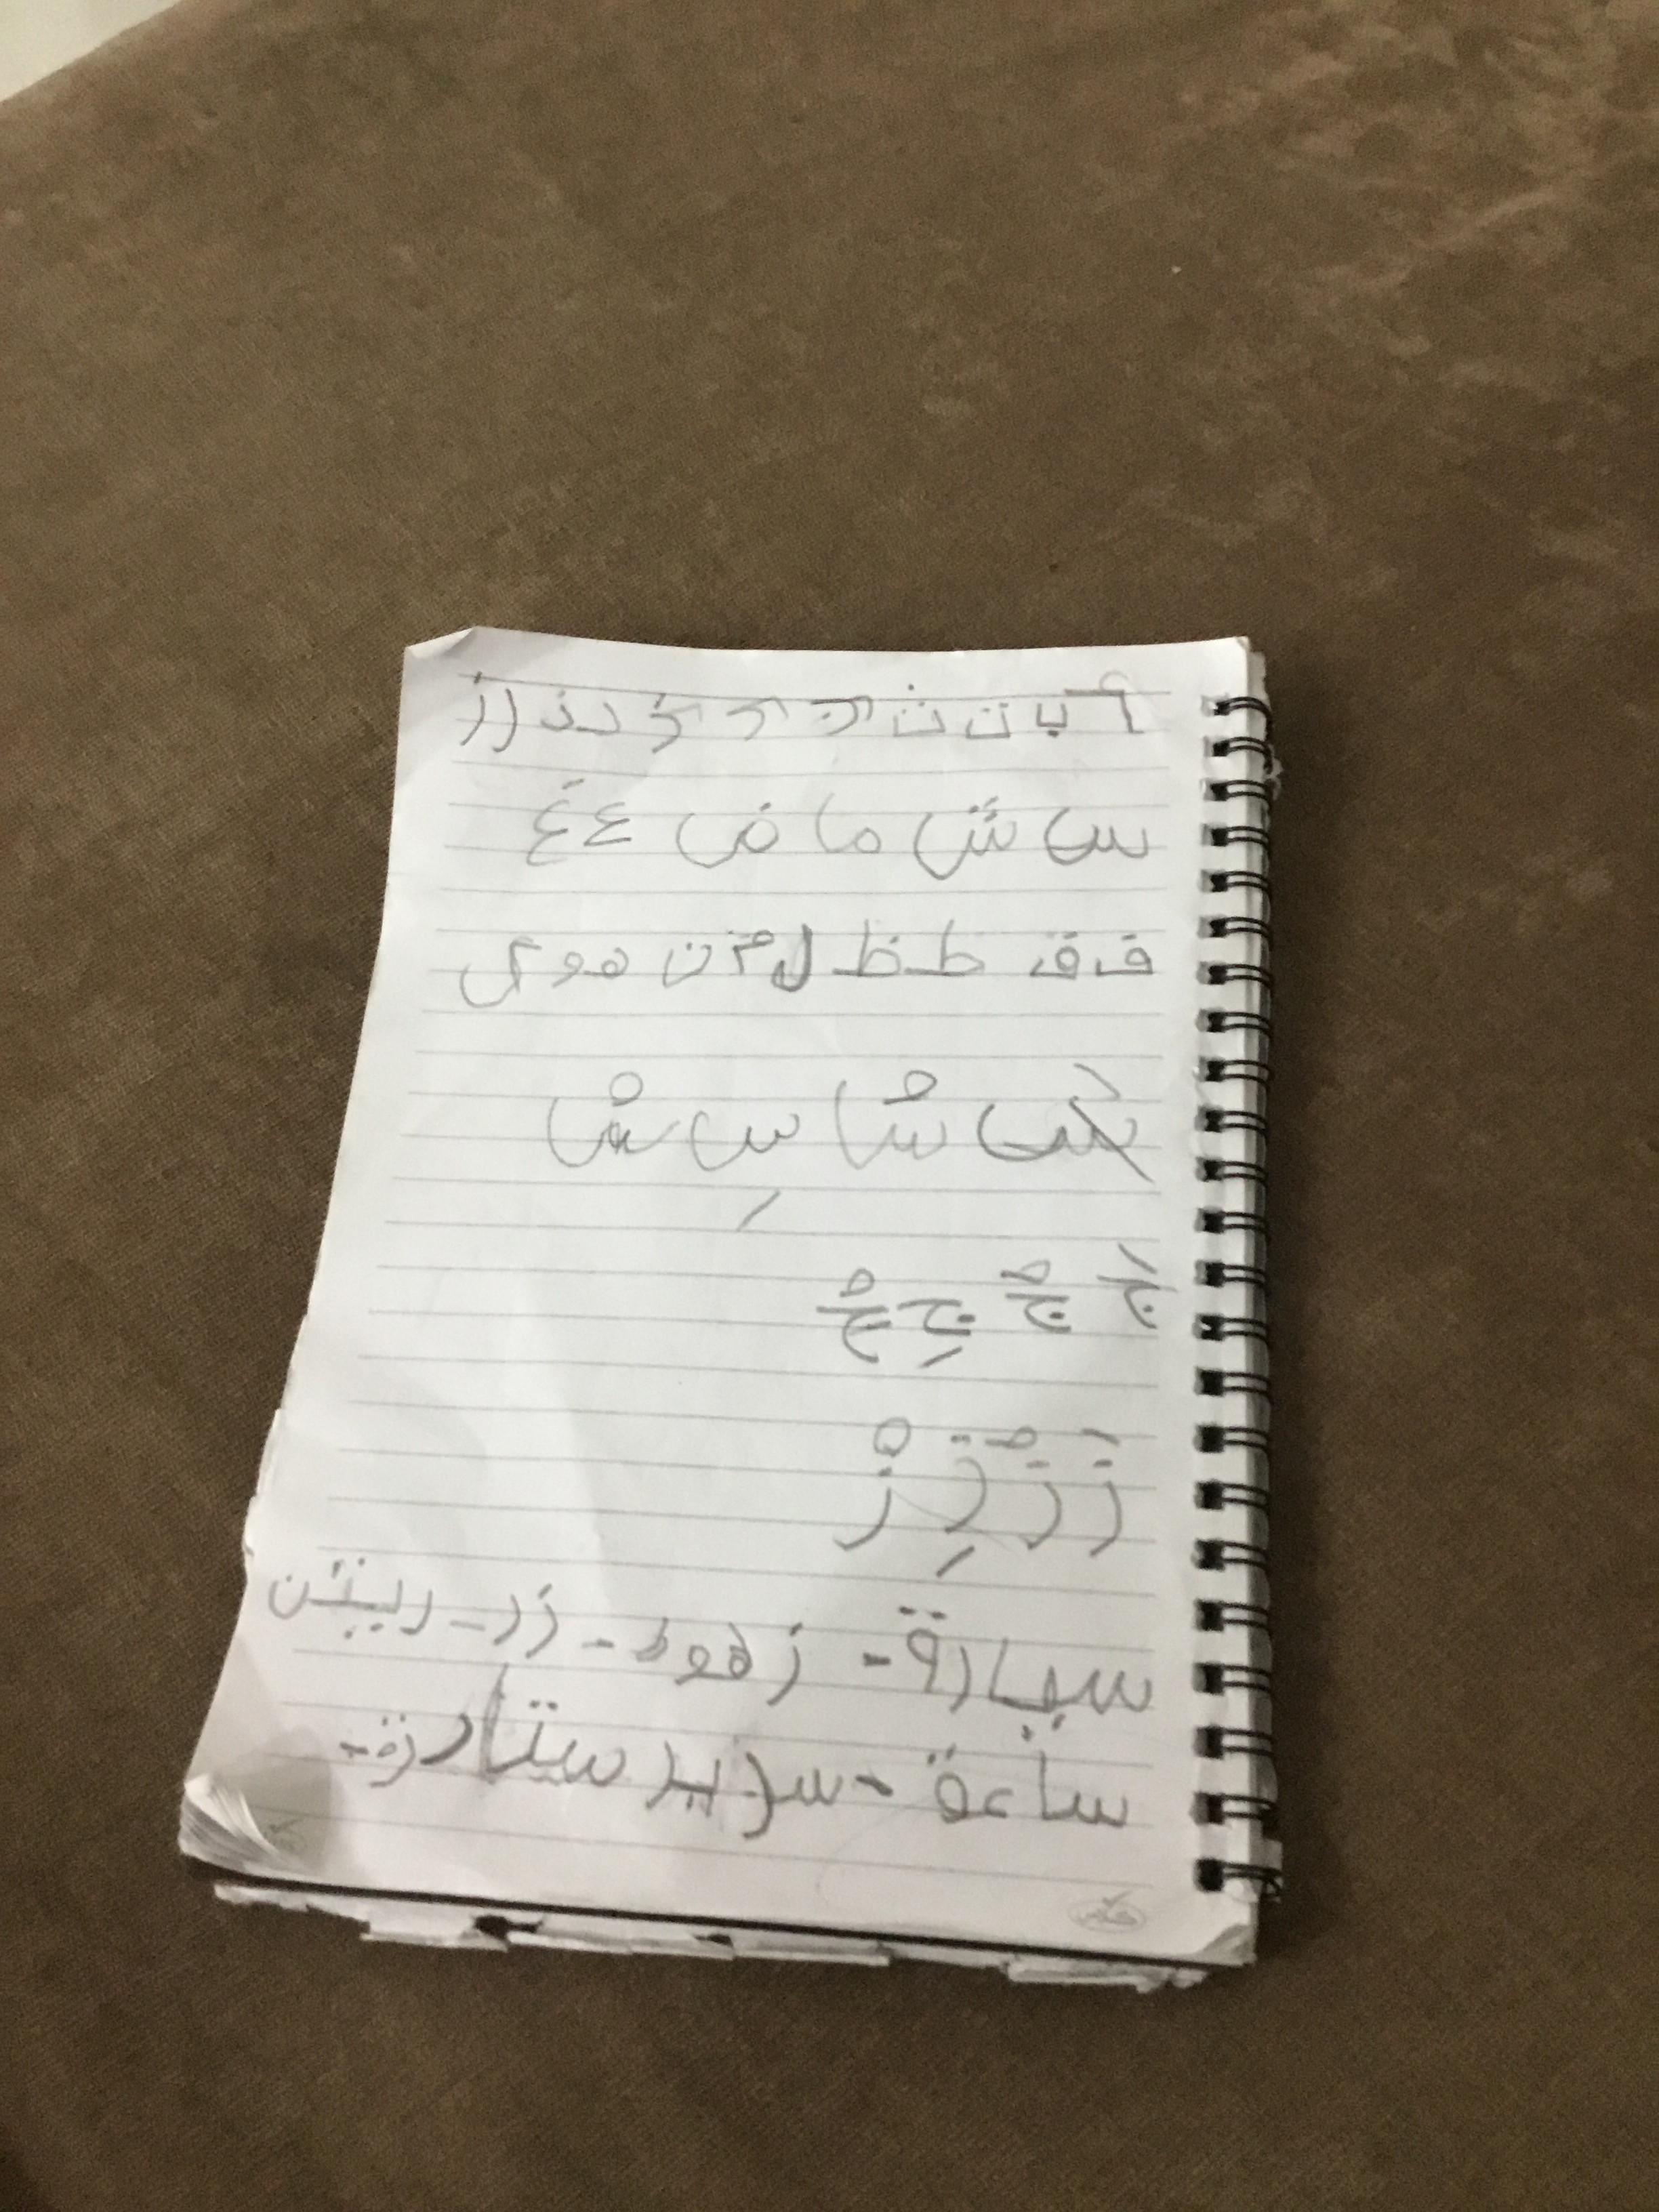 أ ب ت ث ج ح خ د ذ ر ز
س ش ص ض ع غ
ف ق ط ظ ل م ن ه و ي
سَ شُ سِ شْ
جَ جُ جِ جْ
زَ زُ زِ زْ
سيارة - زهور - زر - زيتون
ساعة - سرير ستارة -